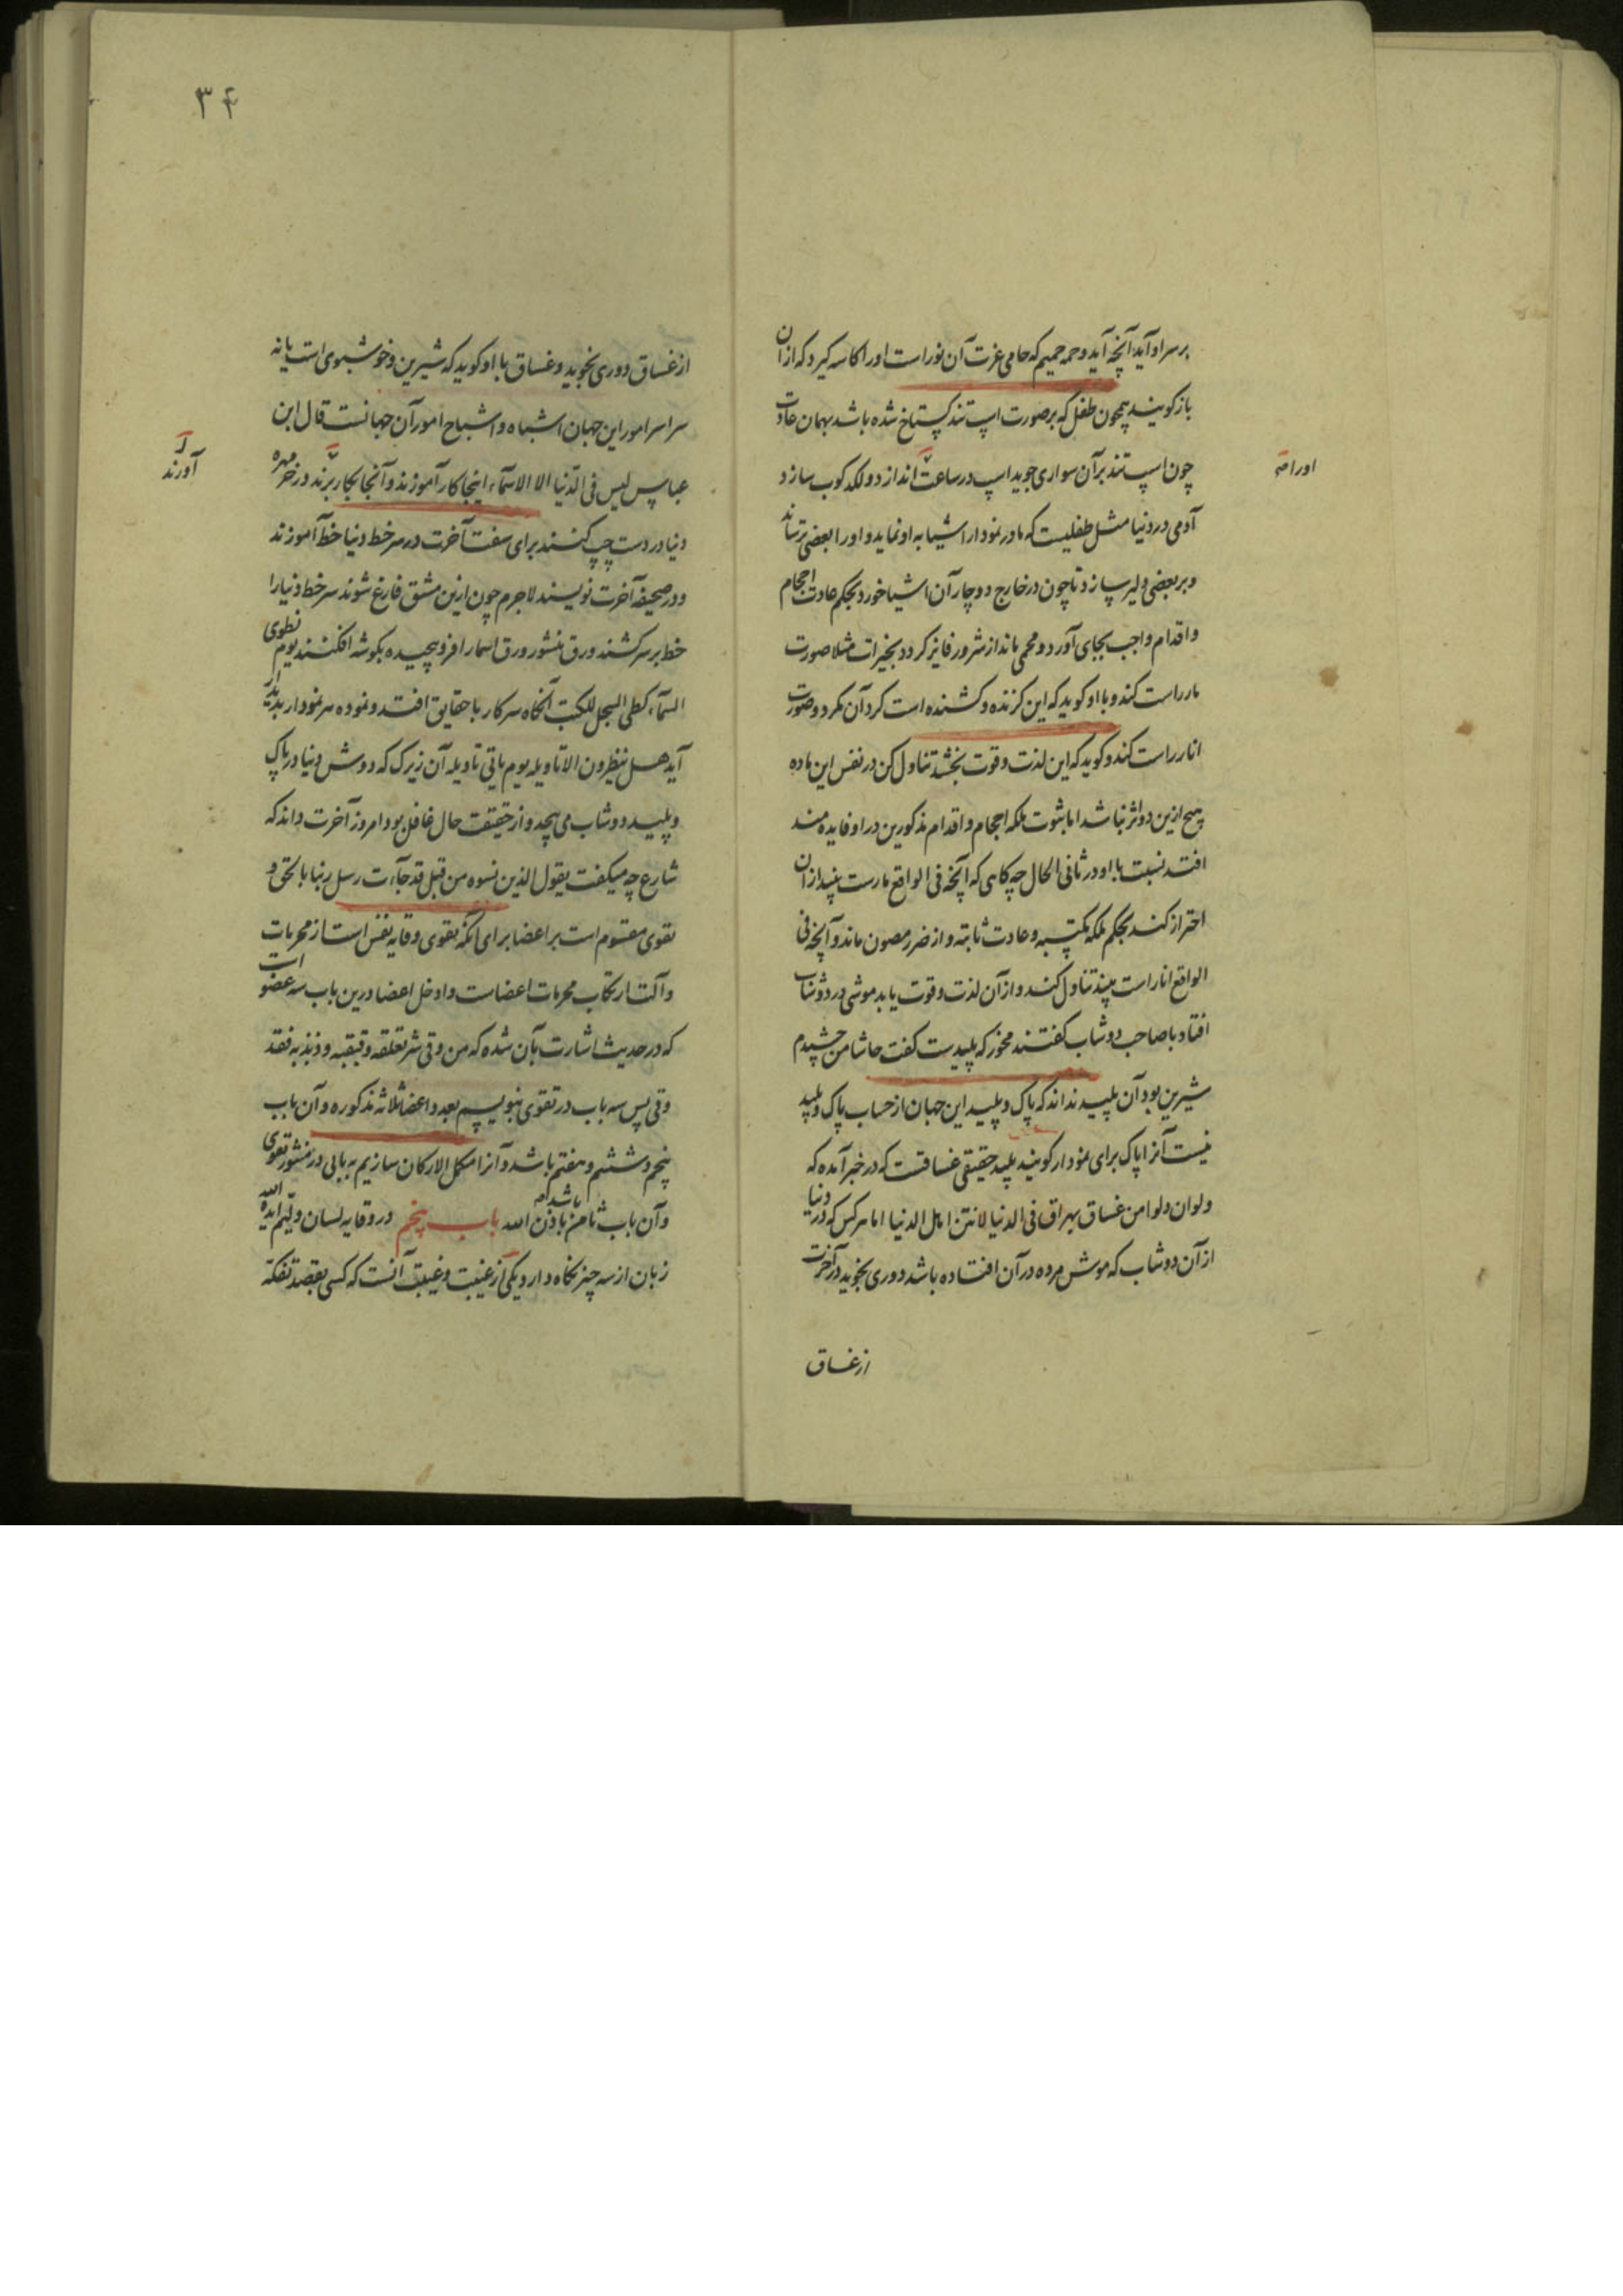 برسر او آید آنچه آید و حمه حمیم که حامی عزت آن نور است او را کاسه گیرد که از آن
باز گویند همچون طفل که بر صورت اسپ تند گستاخ شده باشد بهمان عادت
چون اسپ تند بر آن سواری جوید اسپ در ساعت اندازد و لکد کوب سازد
اورا صح
آدمی در دنیا مثل طفلیست که مادر نمودار اشیا به او نماید و او را بعضی ترساند
و بر بعضی دلیر سازد تا چون در خارج دوچار آن اشیا خورد بحکم عادت احجام
و اقدام واجب بجای آورد و محمی ماند از شرور فایز کردد بخیرات مثلا صورت
مار راست کند و با او کوید که این کزنده و کشنده است کرد آن مکرد و صورت
انار راست کند و کوید که این لذت و قوت بخشد تناول کن در نفس این ماده
هیچ ازین دو اثر نباشد اما بثوت ملکه احجام و اقدام مذکورین در او فایده مند
افتد نسبت با او در ثانی الحال چه کاهی که آنچه فی الواقع مارست بیند از آن
احتراز کند بحکم ملکه مکتسبه و عادت ثابته و از ضرر مصون ماند و آنچه فی
الواقع انار است بیند تناول کند و از آن لذت و قوت یابد موشی در دوشاب
افتاد با صاحب دوشاب کفتند مخور که پلیدست کفت حاشا من چشیدم
شیرین بود آن پلید نداند که پاک و پلید این جهان از حساب پاک و پلید
نیست آنرا پاک برای نمودار کویند پلید حقیقی غساقست که در خبر آمده که
ولو ان دلوا من غساق یهراق فی الدنیا لانتن اهل الدنیا اما هر کس که در دنیا
از آن دوشاب که موش مرده در آن افتاده باشد دوری نجوید در آخرت
از غساق
۳۴
از غساق دوری نجوید و غساق با او کوید که شیرین و خوشبوی است یا نه
سراسر امور این جهان اشباه و اشباح امور آن جهانست قال ابن
عباس لیس فی الدنیا الا الاسماء اینجا کار آموزند و آنجا بکار برند در خر مهره
آورند
دنیا در دست چپ کنند برای سفت آخرت در سر خط دنیا خط آموزند
و در صحیفه آخرت نویسند لاجرم چون ازین مشق فارغ شوند سر خط دنیا را
خط بر سر کشند ورق منشور ورق اسمار افرو پیچیده بکوشه افکنند یوم نطوی
السماء کطی السجل للکتب آنکاه سر کار با حقایق افتد و نموده هر نمودار پدید
آید هل ینظرون الا تاویله یوم یاتی تاویله آن زیرک که دوش دنیا در پاک
و پلید دوشاب می پیچد و از حقیقت حال غافل بود امروز آخرت داند که
شارع چه میکفت یقول الذین نسوه من قبل قد جاءت رسل ربنا بالحق و
تقوی مقسوم است بر اعضا برای آنکه تقوی وقایه نفس است از محرمات
و آلت ارتکاب محرمات اعضاست و ادخل اعضا درین باب سه عضو است
که در حدیث اشارت بآن شده که من وقی شر تعلقه و قبقبه و ذبذبه فقد
وقی پس سه باب در تقوی بنویسیم بعدد اعضا ثلاثه مذکوره و آن باب
پنجم و ششم و هفتم باشد و آنرا مکمل الارکان سازیم به بابی در منشور تقوی
و آن باب ثامن باشد باذن الله باب پنجم در وقایه لسان ولیم ایده الله
زبان از سه چیز نکاه دارد یکی از غیبت و غیبت آنست که کسی بقصد تفکه